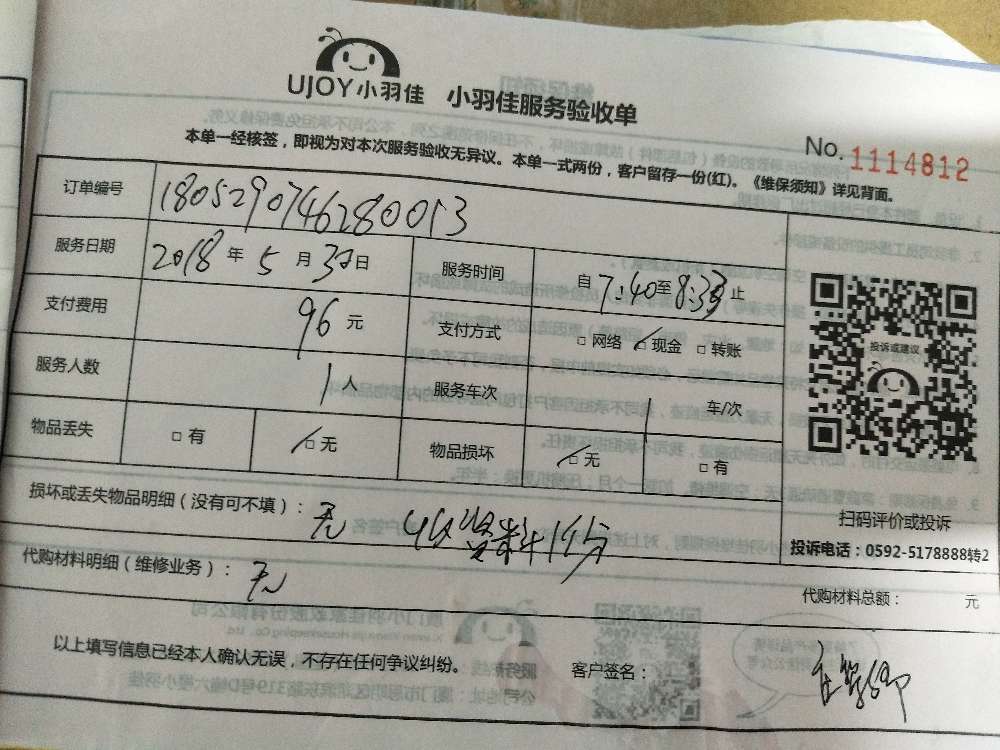 UJOY小羽佳 小羽佳服务验收单
No. 1114812
本单一经核签，即视为对本次服务验收无异议。本单一式两份，客户留存一份(红)。《维保须知》详见背面。
订单编号 1805290746280013
服务日期 2018 年 5 月 30 日 服务时间 自 7:40 至 8:33 止
支付费用 96 元 支付方式 □ 网络 □ 现金 □ 转账
服务人数 1 人 服务车次 1 车/次
物品丢失 □ 有 □ 无 物品损坏 □ 无 □ 有
投诉或建议
扫码评价或投诉
投诉电话：0592-5178888转2
损坏或丢失物品明细（没有可不填）： 无 收资料1份
代购材料明细（维修业务）： 无
代购材料总额： 元
以上填写信息已经本人确认无误，不存在任何争议纠纷。 客户签名：